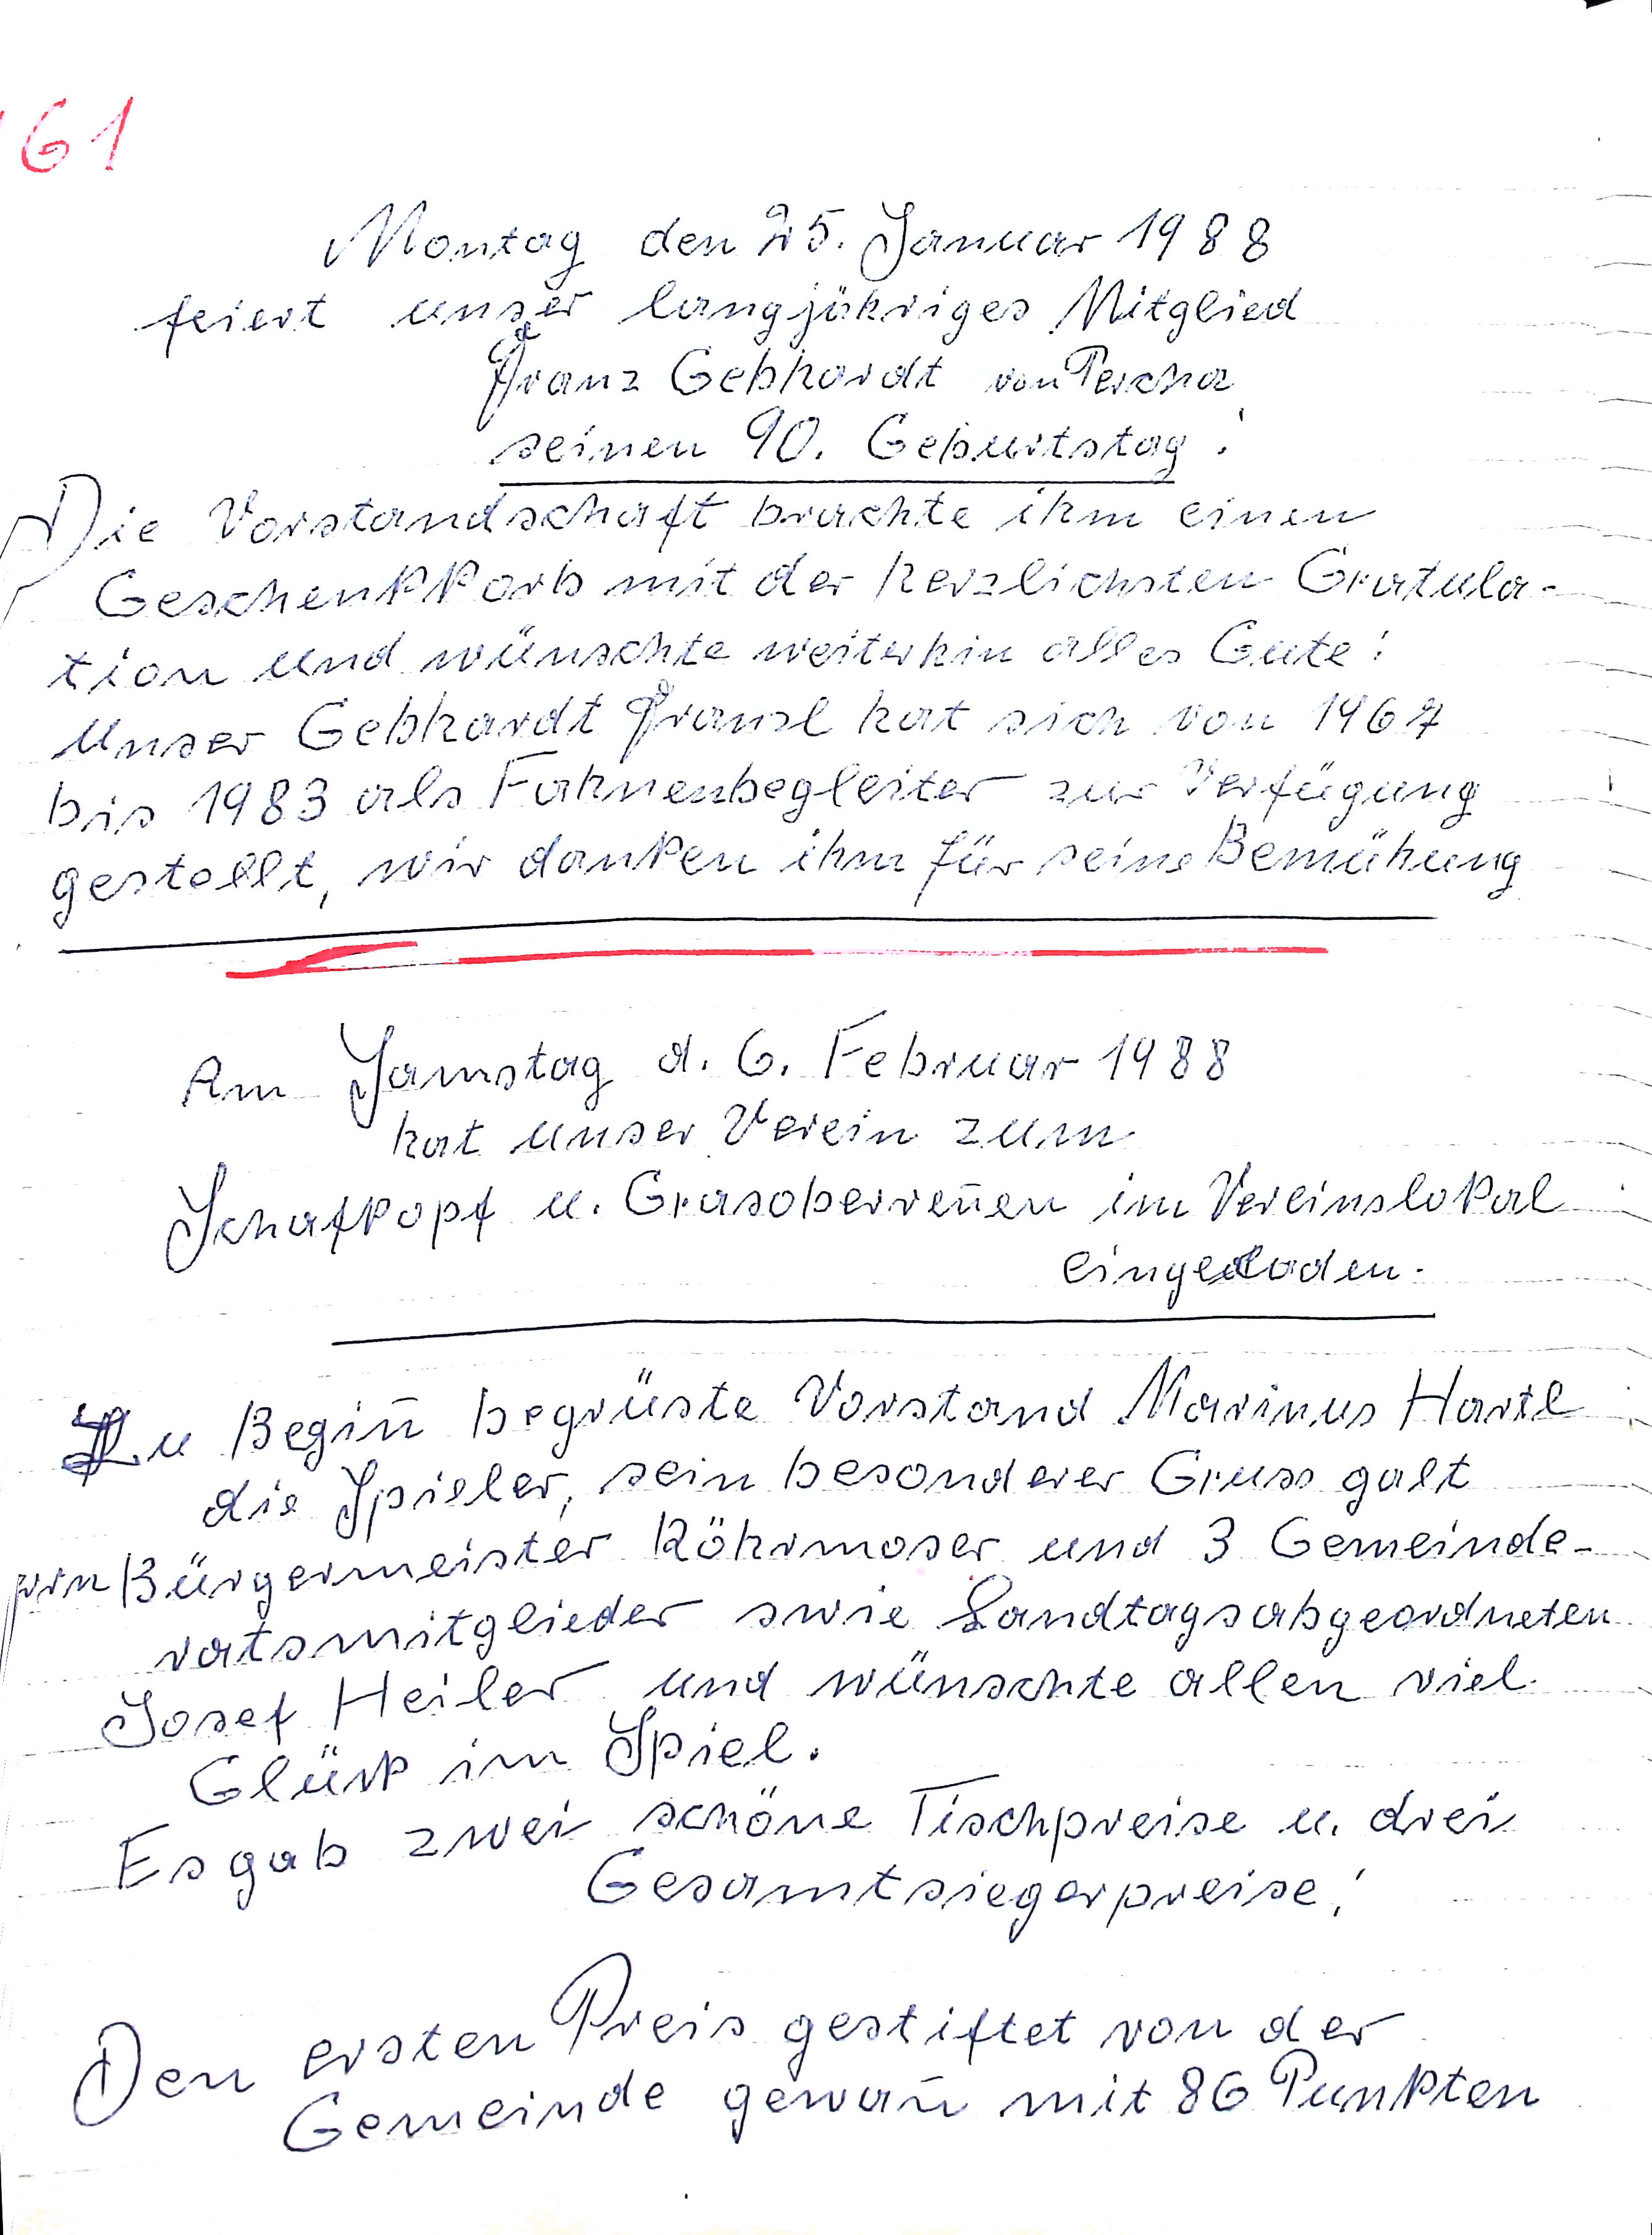 161
Montag den 25. Januar 1988
feiert unser langjähriges Mitglied
Franz Gebhardt von Percha
seinen 90. Geburtstag!
Die Vorstandschaft brachte ihm einen
Geschenkkorb mit der herzlichsten Gratula-
tion und wünschte weiterhin alles Gute!
Unser Gebhardt Franzl hat sich von 1967
bis 1983 als Fahnenbegleiter zur Verfügung
gestellt, wir danken ihm für seine Bemühung
Am Samstag d. 6. Februar 1988
hat unser Verein zum
Schafkopf u. Grasoberreñen im Vereinslokal
eingeladen.
Zu Begin̄ begrüste Vorstand Marinus Hartl
die Spieler, sein besonderer Gruss galt
Bürgermeister Röhrmoser und 3 Gemeinde-
ratsmitglieder swie Landtagsabgeordneten
Josef Heiler und wünschte allen viel
Glück im Spiel.
Es gab zwei schöne Tischpreise u. drei
Gesamtsiegerpreise!
Den ersten Preis gestiftet von der
Gemeinde gewan̄ mit 86 Punkten